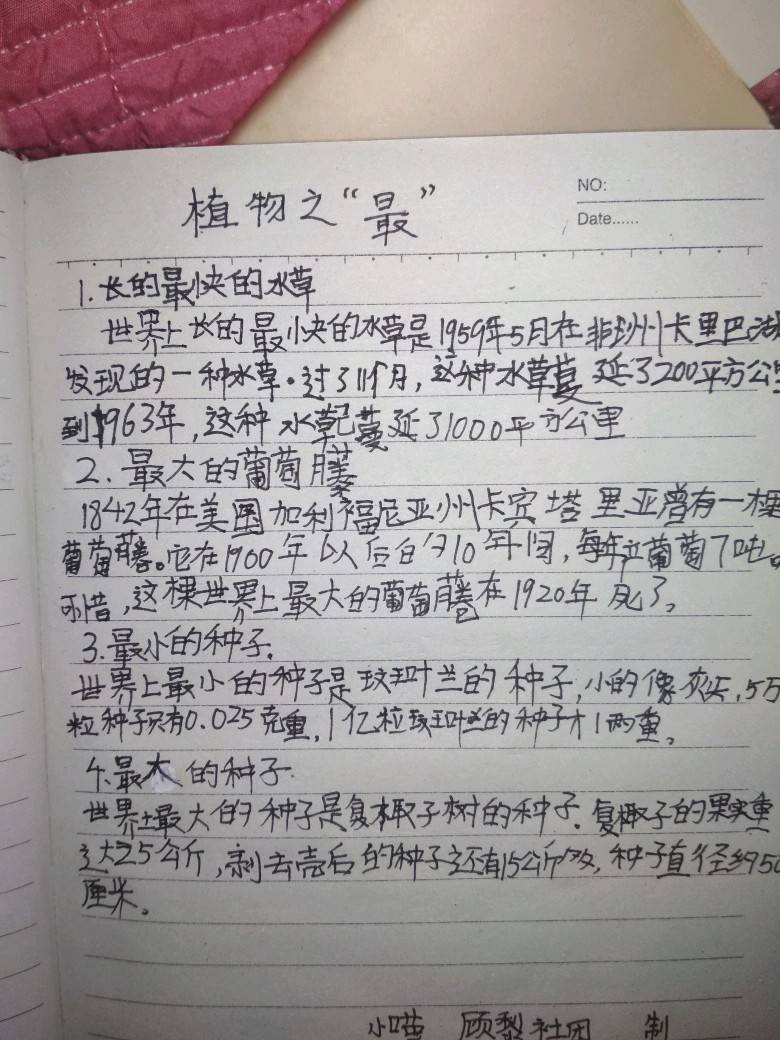 植物之“最”
NO:
Date......
1.长的最快的水草
世界上长的最快的水草是1959年5月在非洲卡里巴湖
发现的一种水草。过了11个月,这种水草蔓延了200平方公里
到1963年,这种水草蔓延了1000平方公里
2.最大的葡萄藤
1842年在美国加利福尼亚州卡宾塔里亚曾有一棵
葡萄藤。它在1900年以后的10年间,每年产葡萄7吨。
可惜,这棵世界上最大的葡萄藤在1920年死了。
3.最小的种子.
世界上最小的种子是玟玥叶兰的种子,小的像灰尘,5万
粒种子只有0.025克重,1亿粒玟玥叶兰的种子才1两重。
4.最大的种子.
世界上最大的种子是复椰子树的种子.复椰子的果实重
达25公斤,剥去壳后的种子还有15公斤,种子直径约50
厘米。
小喵 顾梨社团 制